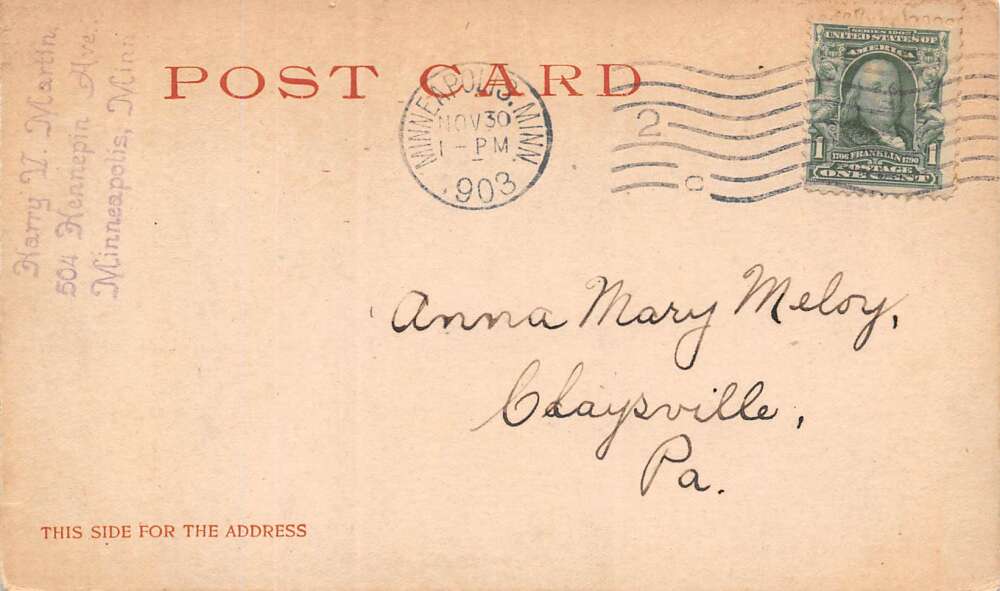 Harry V. Martin.
504 Hennepin Ave.
Minneapolis, Minn
POST CARD
MINNEAPOLIS, MINN
NOV 30
1-PM
1903
2
C
SERIES 1902
UNITED STATES OF
AMERICA
1706 FRANKLIN 1790
1 POSTAGE 1
ONE CENT
Anna Mary Meloy,
Claysville,
Pa.
THIS SIDE FOR THE ADDRESS